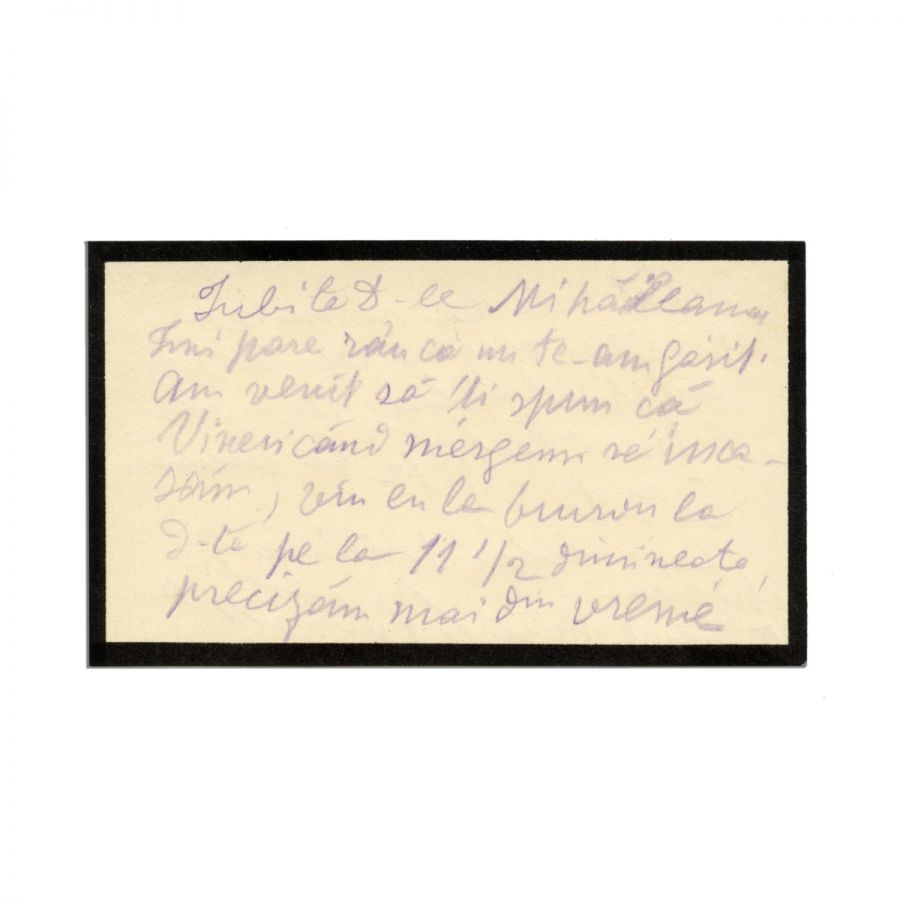 Iubite D-le Mihăileanu
Îmi pare rău că nu te-am găsit.
Am venit să îți spun că
Vineri când mergem să înca-
săm, viu eu la biurou la
d-ta pe la 11 1/2 dimineața,
precizăm mai din vreme